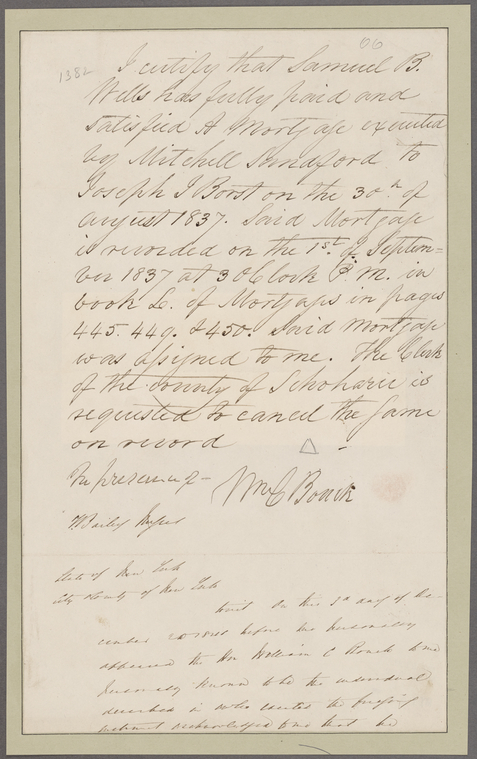 06
1382
I certify that Samuel B.
Wells has fully paid and
satisfied A Mortgage executed
by Mitchell Sandford to
Joseph I Borst on the 30th of
august 1837. Said Mortgage
is recorded on the 1st of Septem=
ber 1837 at 3 OClock P.M. in
book L. of Mortgages in pages
445. 449. & 450. Said Mortgage
was assigned to me. The Clerk
of the county of Schoharie is
requested to cancel the same
on record
In presence of
Wm C Bouck
State of New York
City & County of New York
On this 3d day of De-
cember before me personally
appeared the Hon William C Bouck to me
personally known to be the individual
described in who executed the foregoing
instrument acknowledged to me that he